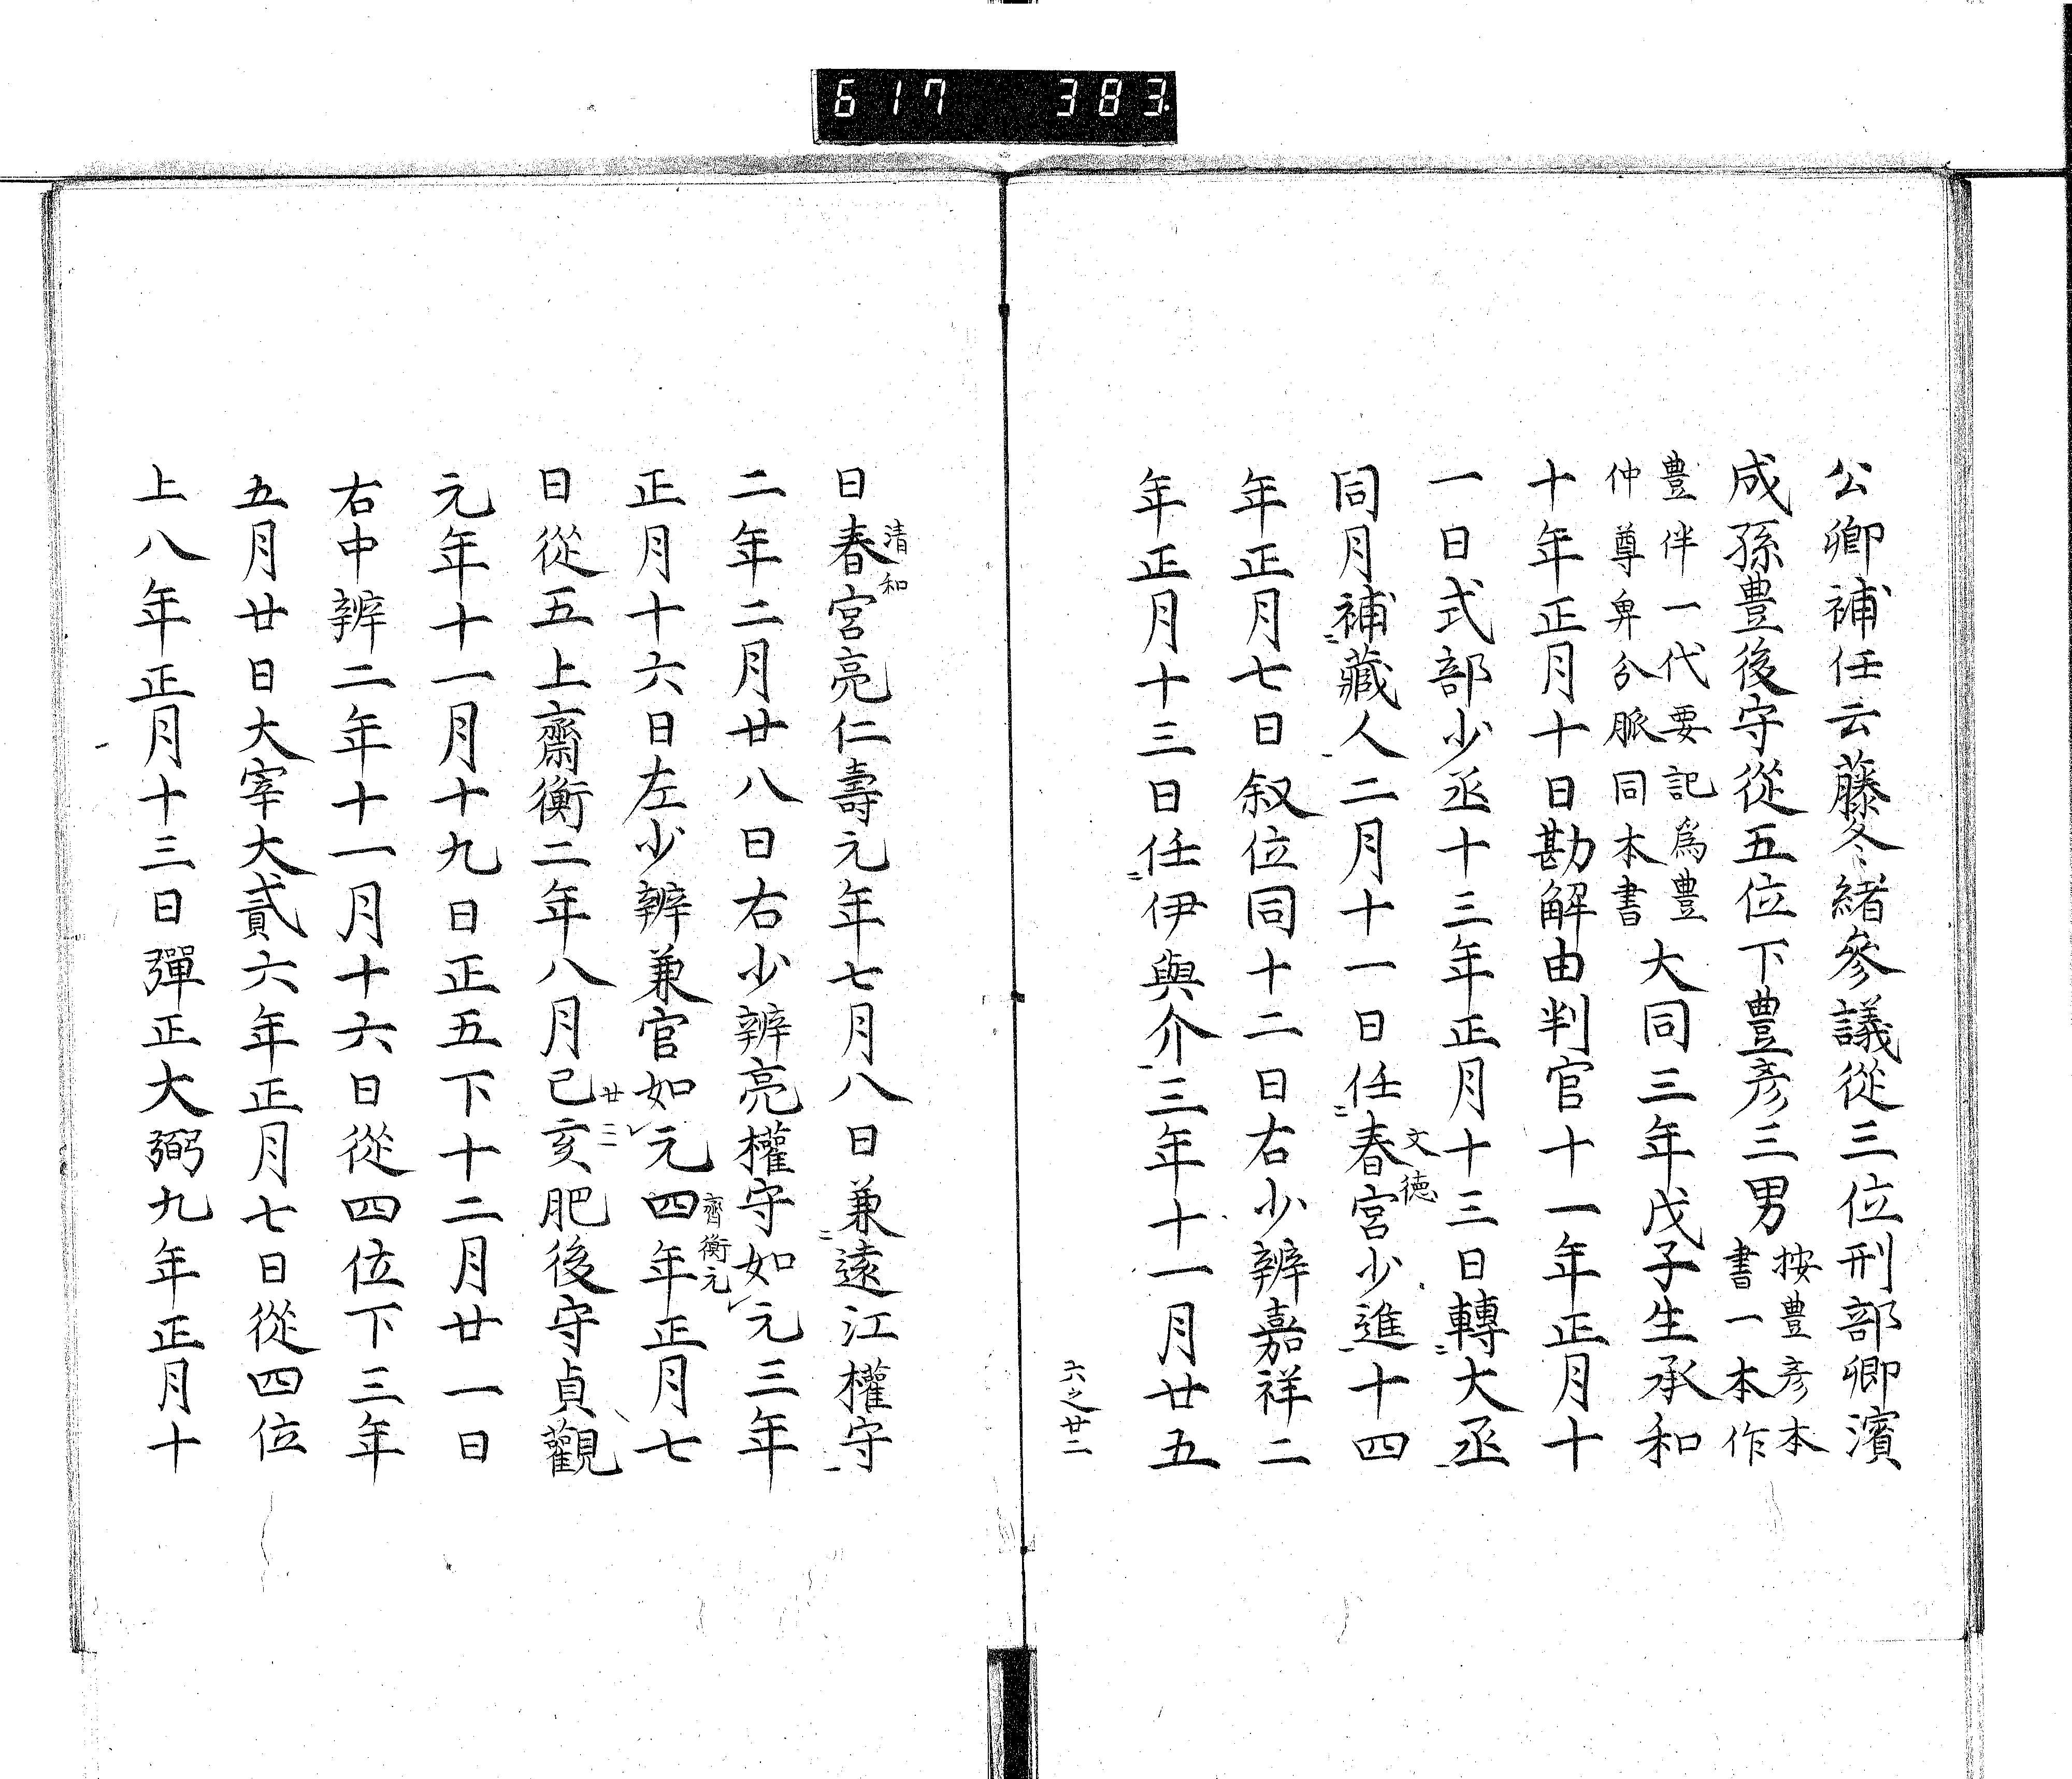 617 383
公卿補任云藤冬緒參議從三位刑部卿濱
成孫豊後守從五位下豊彦三男
按豊彦本
書一本作
豊伴一代要記爲豊
仲尊卑分脈同本書
大同三年戊子生承和
十年正月十日勘解由判官十一年正月十
一日式部少丞十三年正月十三日轉大丞
同月補藏人二月十一日任春宮少進十四
文徳
年正月七日叙位同十二日右少辨嘉祥二
年正月十三日任伊與介三年十一月廿五
六之廿二
日春宮亮仁壽元年七月八日兼遠江權守
清和
二年二月廿八日右少辨亮權守如元三年
正月十六日左少辨兼官如元四年正月七
齊衡元
日從五上齋衡二年八月己亥肥後守貞觀
廿三
元年十一月十九日正五下十二月廿一日
右中辨二年十一月十六日從四位下三年
五月廿日大宰大貳六年正月七日從四位
上八年正月十三日彈正大弼九年正月十